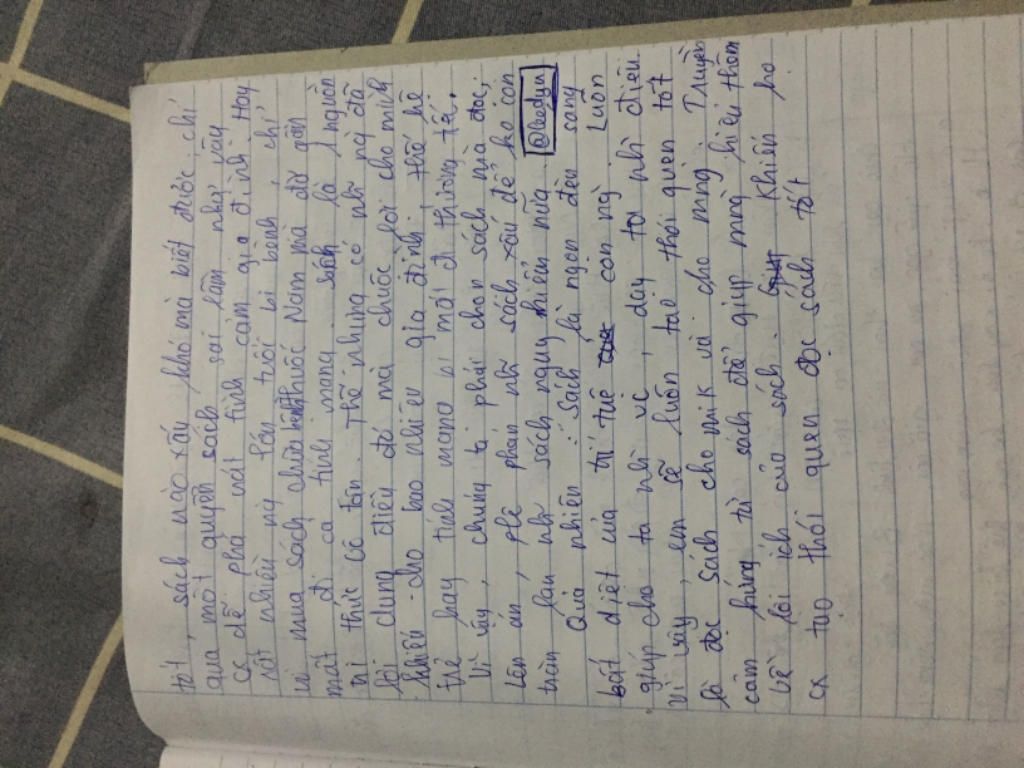 tốt, sách nào xấu khó mà biết được, chỉ
qua một quyển sách sai lầm như vậy
cx dễ phá nát tình cảm gia đình. Hay
rất nhiều ng lên tuổi bị bệnh, chỉ
vì mua sách chữa thuốc Nam mà đã gần
mất đi cả tính mạng. Sách là nguồn
tri thức vô tận. Thế nhưng có nh ng đã
lợi dụng điều đó mà chuốc lợi cho mình
khiến cho bao nhiêu gia đình, thế hệ
trẻ hay tính mạng bị mất đi thương tế.
Vì vậy, chúng ta phải chọn sách mà đọc,
lên án, phê phán nh sách xấu để ko còn
tràn lan nh sách nguy hiểm nữa.
@Leedyu
Quả nhiên: "Sách là ngọn đèn sáng
bất diệt của trí tuệ con ng". Luôn
giúp cho ta nh, dạy ta nh điều.
Vì vậy, em sẽ luôn tạo thói quen tốt
là đọc sách cho mik và cho mng. Truyền
cảm hứng từ sách để giúp mng hiểu thêm
về lợi ích của sách. Khiến họ
cx tạo thói quen đọc sách tốt